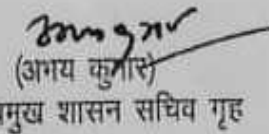 (अभय कुमार)
प्रमुख शासन सचिव गृह